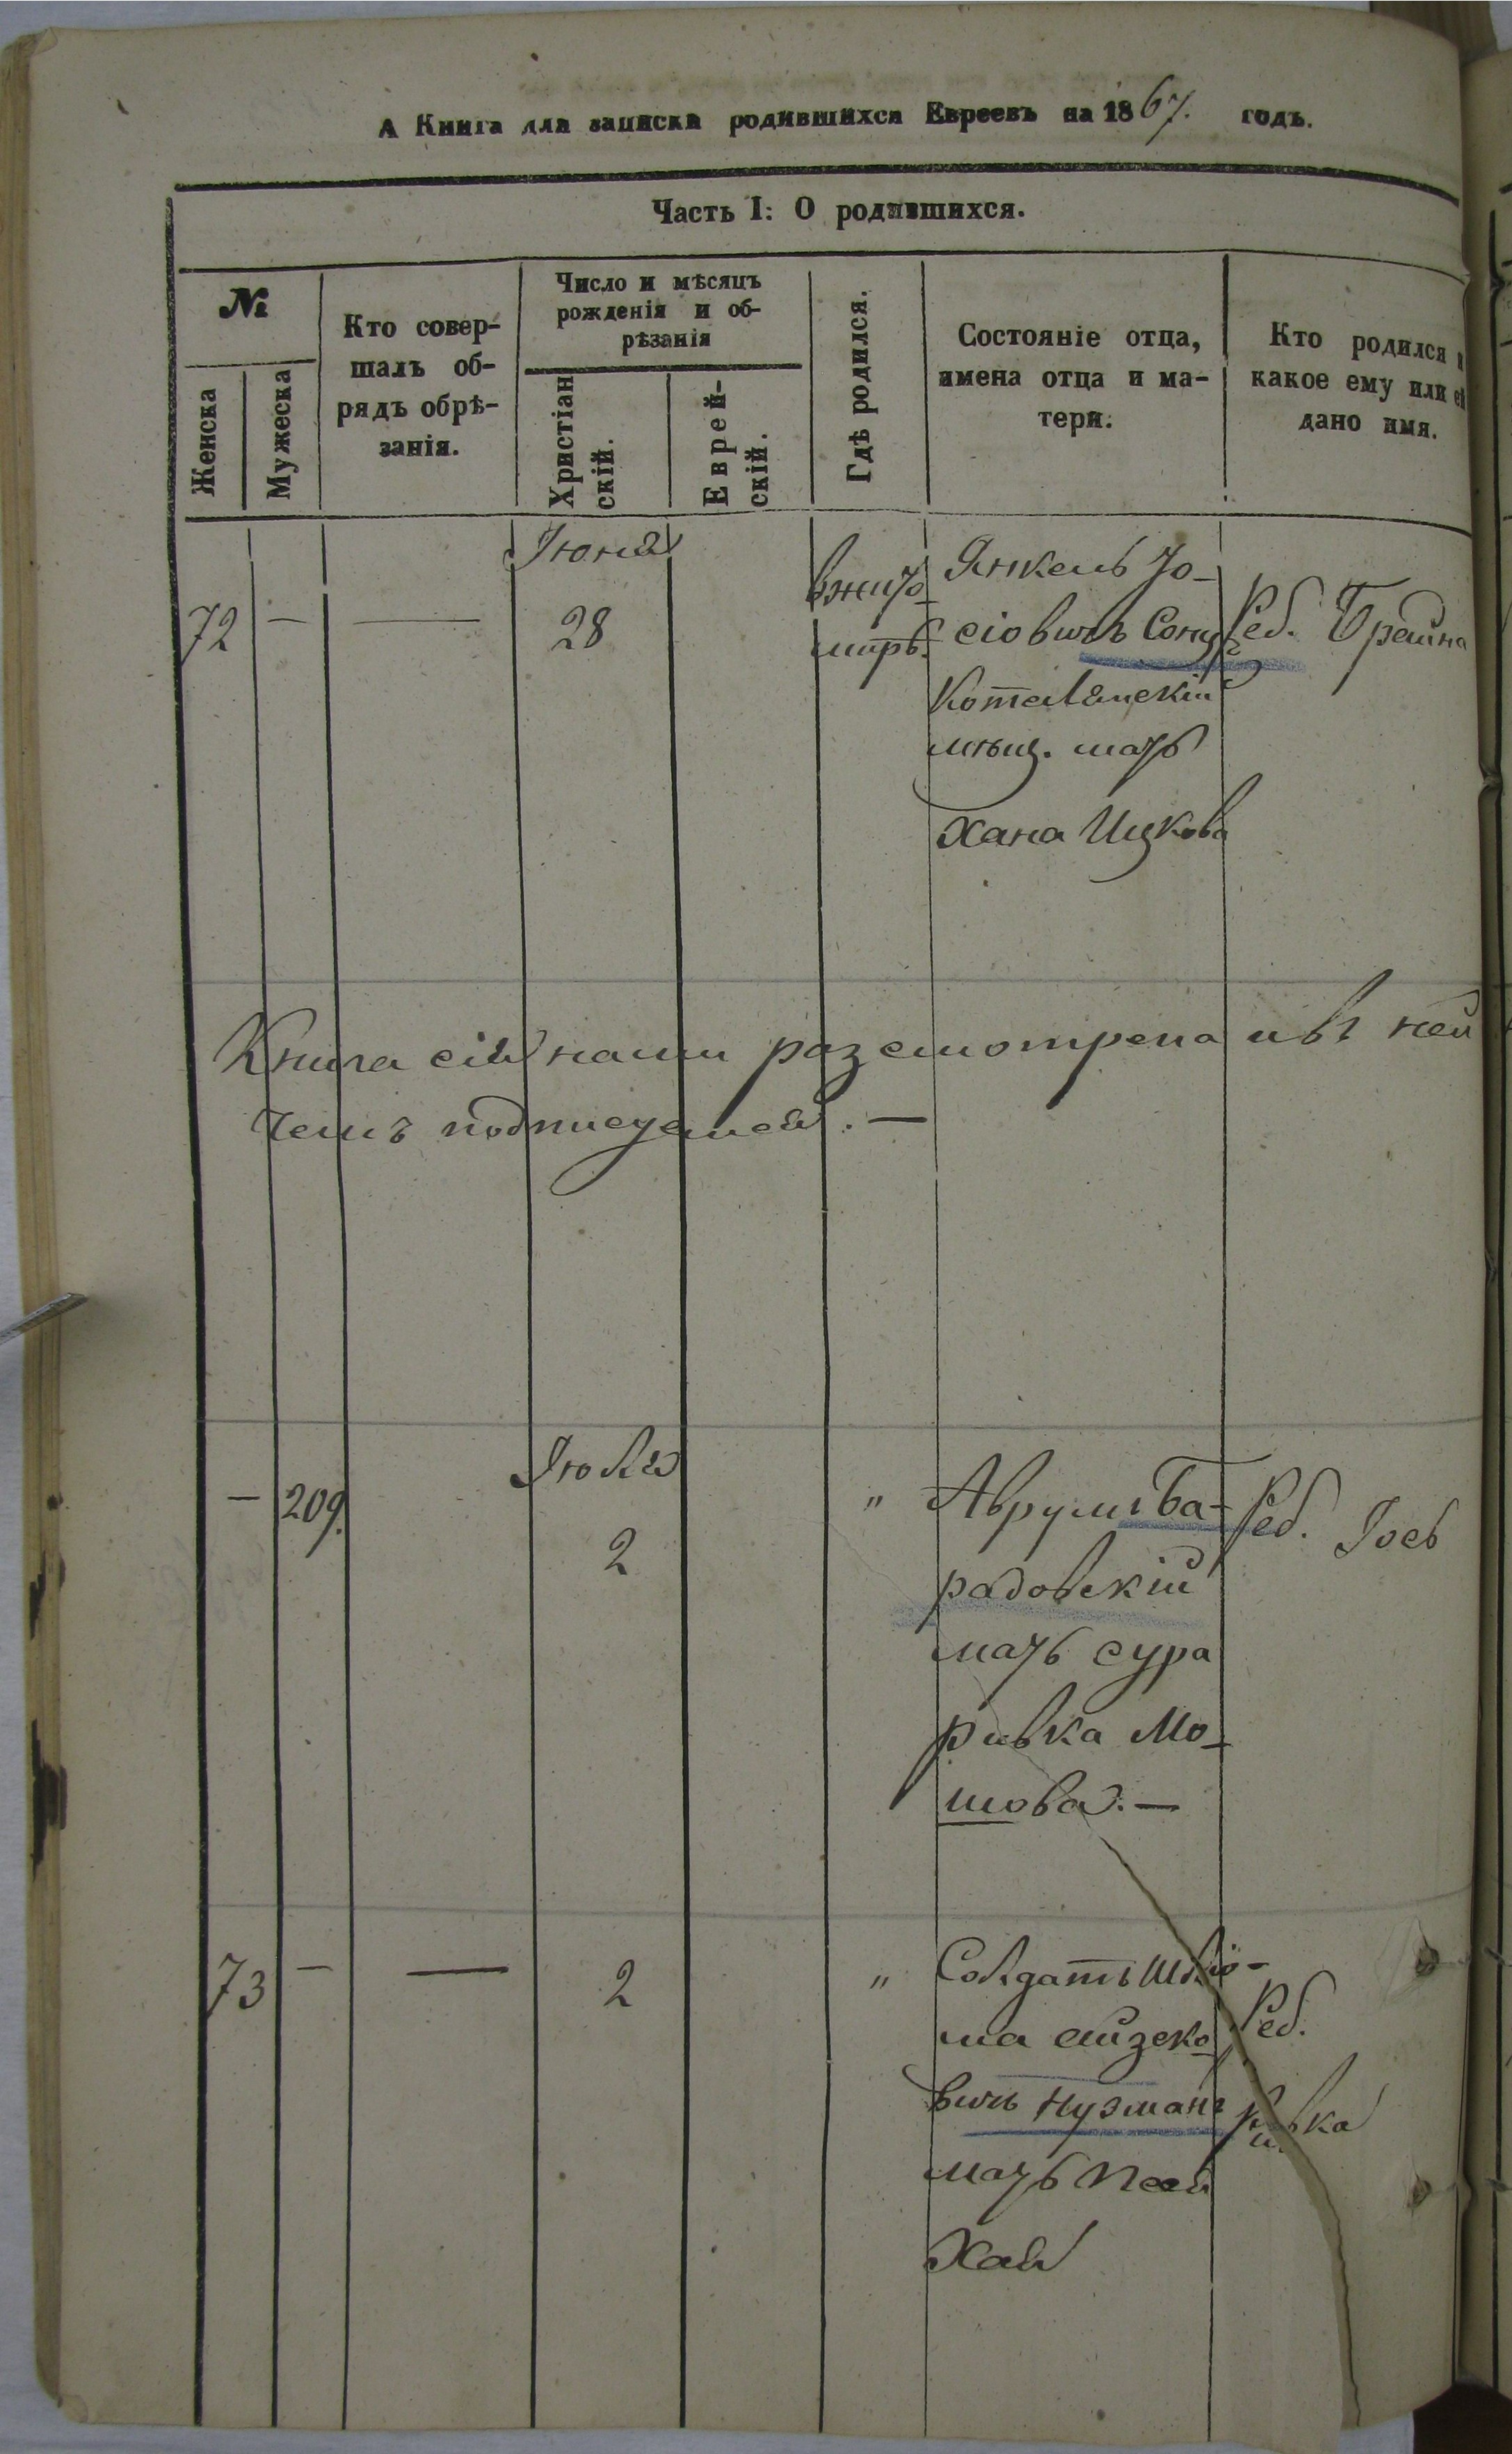 А Книга для записки родившихся Евреевъ на 1867. годъ.
Часть I: О родившихся.
№
Женска
Мужеска
Кто совер-
шалъ об-
рядъ обрѣ-
занія.
Число и мѣсяцъ
рожденія и об-
рѣзанія
Христіан
скій.
Еврей-
скій.
Гдѣ родился.
Состояніе отца,
имена отца и ма-
тери.
Кто родился
какое ему или
дано имя.
Іюня
72 — — 28
вжито
миръ.
Янкель Іо-
сіовичъ Сонцъ
Котелянскій
мѣщ. мать
Хана Ицкова
Реб. Брайна
Книга сія нами разсмотрена и въ ней
чемъ подписуемся. —
Іюля
— 209. 2 "
Аврумъ Ба-
радовскій
мать сура
ривка Мо-
шова. —
Реб. Іось
73 — — 2 "
Солдатъ Шліо-
ма айзеко
вичъ Нузманъ
мать Песя
Хая
Реб.
ривка